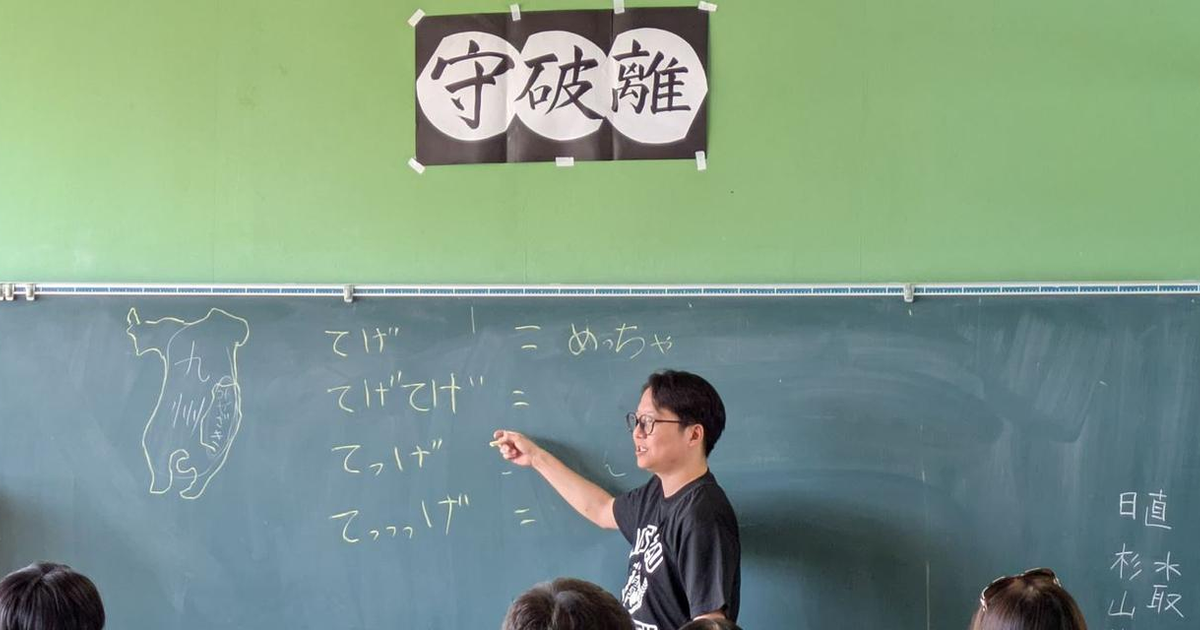 守破離
九州
みやざき
てげ = めっちゃ
てげてげ =
てっげ =
てっっっげ =
日直
杉山
水取